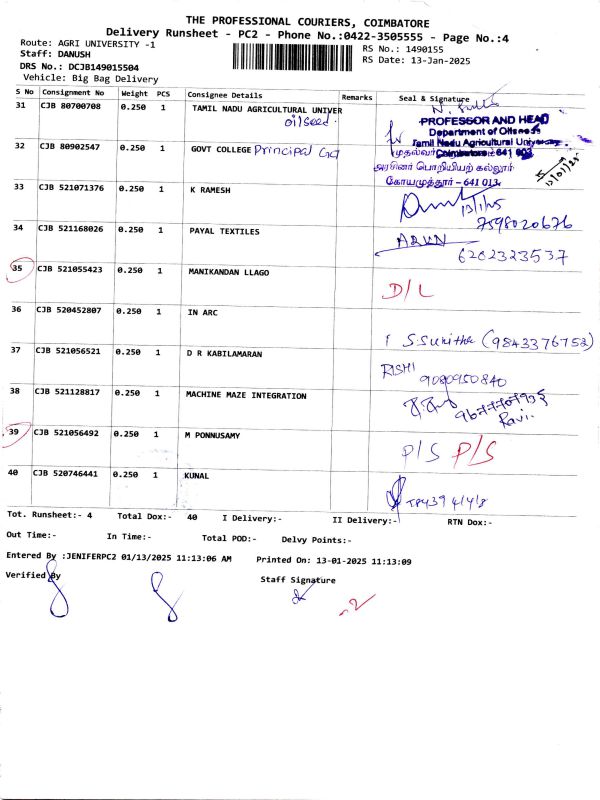 THE PROFESSIONAL COURIERS, COIMBATORE
Delivery Runsheet - PC2 - Phone No.:0422-3505555 - Page No.:4
Route: AGRI UNIVERSITY -1
RS No.: 1490155
Staff: DANUSH
RS Date: 13-Jan-2025
DRS No.: DCJB149015504
Vehicle: Big Bag Delivery
S No Consignment No Weight PCS Consignee Details Remarks Seal & Signature
31 CJB 80700708 0.250 1 TAMIL NADU AGRICULTURAL UNIVER
oilseed.
PROFESSOR AND HEAD
Department of Oilseeds
Tamil Nadu Agricultural University
Coimbatore - 641 003
32 CJB 80902547 0.250 1 GOVT COLLEGE Principal
முதல்வர்
அரசினர் பொறியியற் கல்லூரி
கோயமுத்தூர் - 641 013.
33 CJB 521071376 0.250 1 K RAMESH
13/1/25
7598020676
34 CJB 521168026 0.250 1 PAYAL TEXTILES
ARUN
6202323537
35 CJB 521055423 0.250 1 MANIKANDAN LLAGO
D/L
36 CJB 520452807 0.250 1 IN ARC
S.Sunitha (9843376752)
37 CJB 521056521 0.250 1 D R KABILAMARAN
RISHI
9080950840
38 CJB 521128817 0.250 1 MACHINE MAZE INTEGRATION
Ravi.
39 CJB 521056492 0.250 1 M PONNUSAMY
P/S P/S
40 CJB 520746441 0.250 1 KUNAL
Tot. Runsheet:- 4 Total Dox:- 40 I Delivery:- II Delivery:- RTN Dox:-
Out Time:- In Time:- Total POD:- Delvy Points:-
Entered By :JENIFERPC2 01/13/2025 11:13:06 AM Printed On: 13-01-2025 11:13:09
Verified By Staff Signature